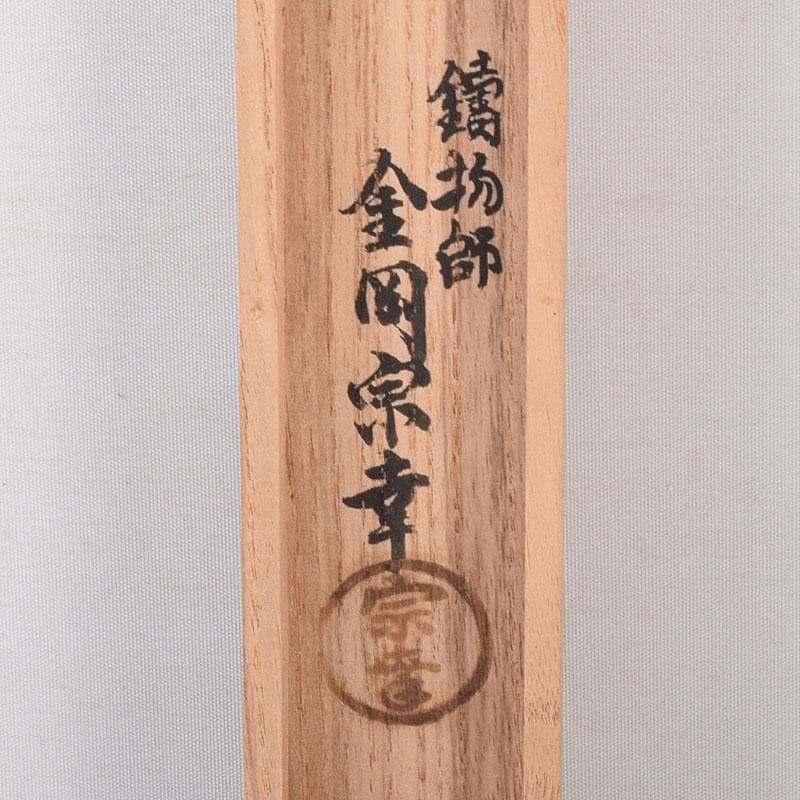 鑄物師
金岡宗幸
宗幸